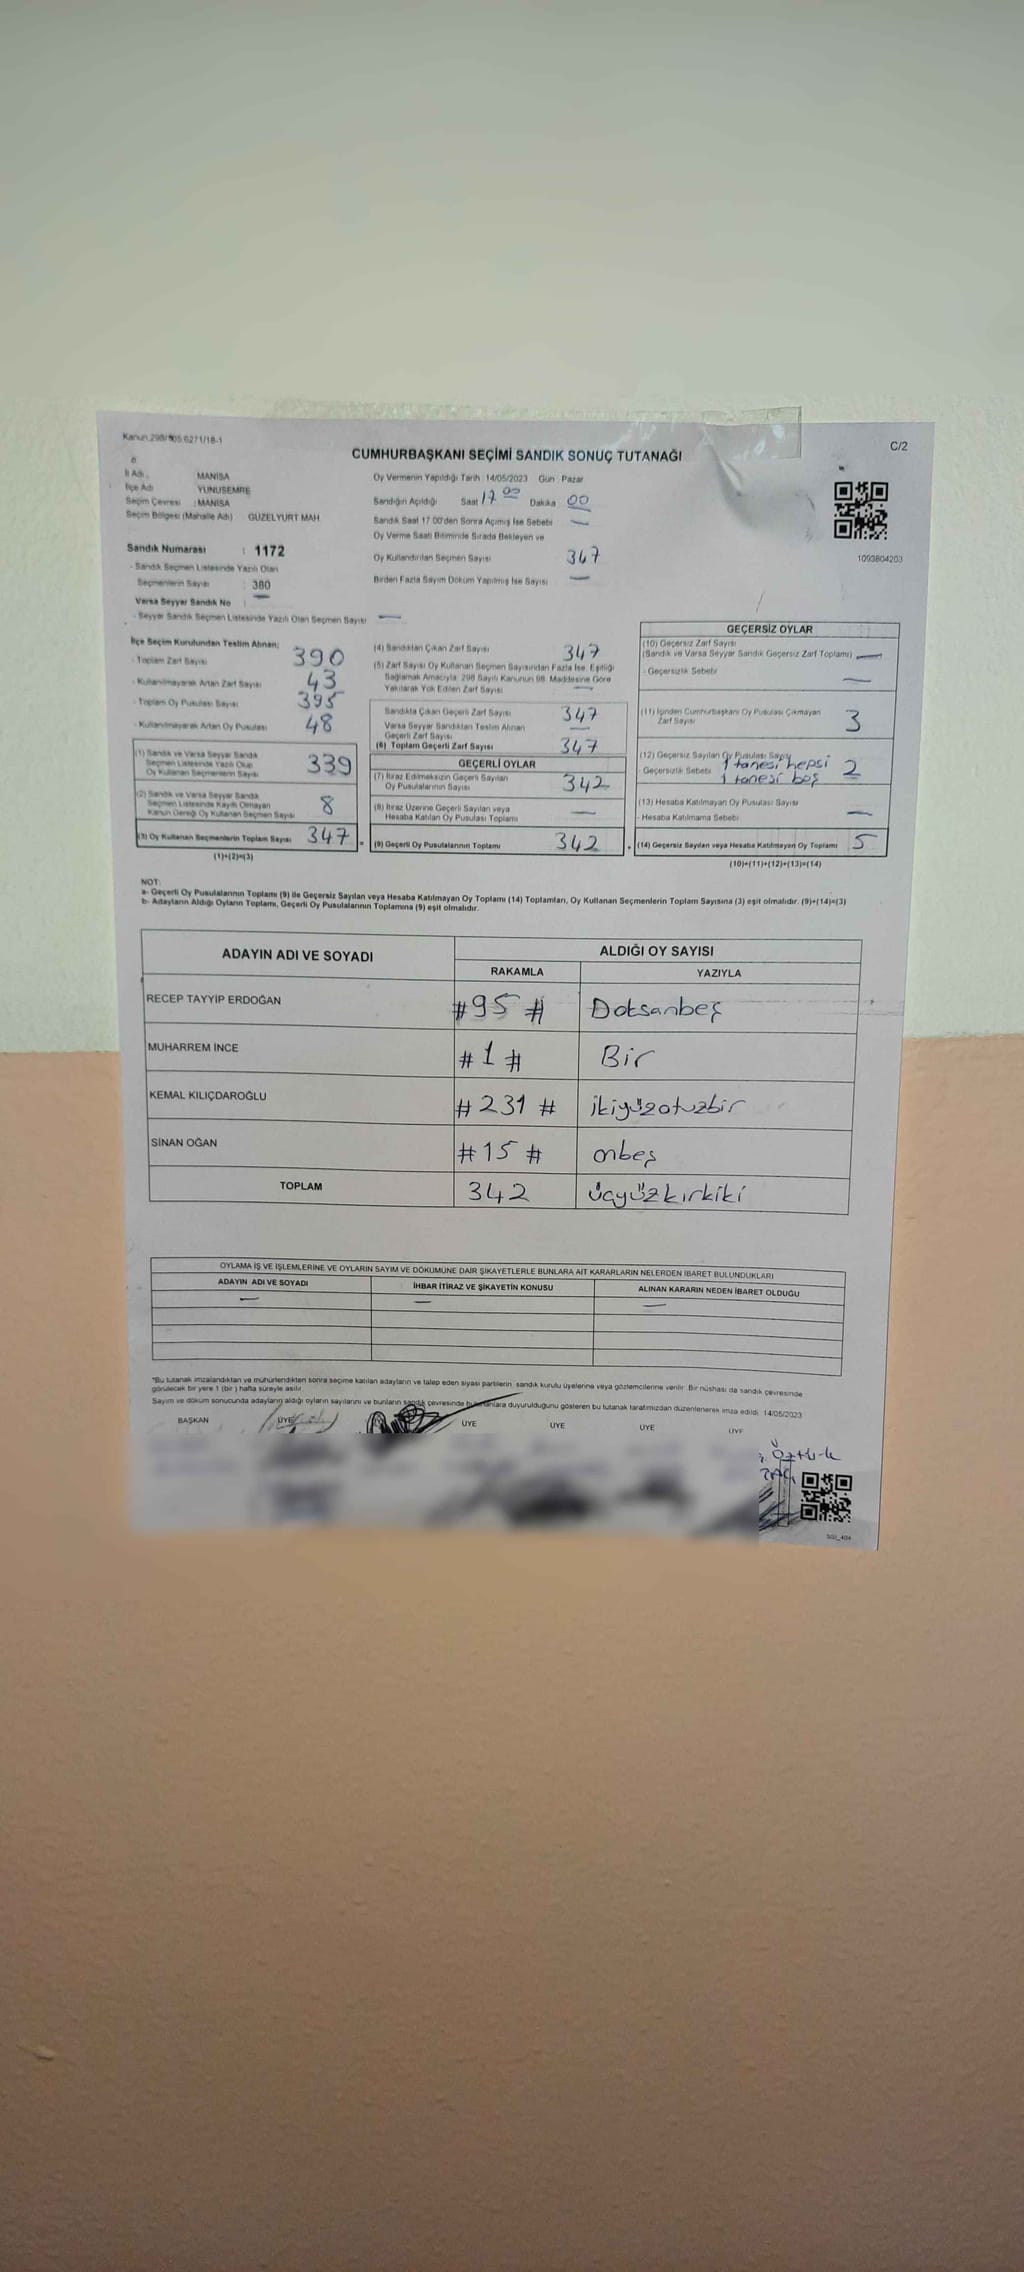 Kanun:298/105,6271/18-1
C/2
CUMHURBAŞKANI SEÇİMİ SANDIK SONUÇ TUTANAĞI
İl Adı : MANİSA
İlçe Adı YUNUSEMRE
Seçim Çevresi : MANİSA
Seçim Bölgesi (Mahalle Adı) GÜZELYURT MAH
Sandık Numarası : 1172
- Sandık Seçmen Listesinde Yazılı Olan
Seçmenlerin Sayısı : 380
Varsa Seyyar Sandık No : —
- Seyyar Sandık Seçmen Listesinde Yazılı Olan Seçmen Sayısı —
Oy Vermenin Yapıldığı Tarih : 14/05/2023 Gün : Pazar
Sandığın Açıldığı Saat 17 00 Dakika 00
Sandık Saat 17:00'den Sonra Açılmış İse Sebebi —
Oy Verme Saati Bitiminde Sırada Bekleyen ve
Oy Kullandırılan Seçmen Sayısı 347
Birden Fazla Sayım Döküm Yapılmış İse Sayısı —
1093804203
İlçe Seçim Kurulundan Teslim Alınan;
- Toplam Zarf Sayısı 390
- Kullanılmayarak Artan Zarf Sayısı 43
- Toplam Oy Pusulası Sayısı 395
- Kullanılmayarak Artan Oy Pusulası 48
(1) Sandık ve Varsa Seyyar Sandık
Seçmen Listesinde Yazılı Olup
Oy Kullanan Seçmenlerin Sayısı 339
(2) Sandık ve Varsa Seyyar Sandık
Seçmen Listesinde Kayıtlı Olmayan
Kanun Gereği Oy Kullanan Seçmen Sayısı 8
(3) Oy Kullanan Seçmenlerin Toplam Sayısı 347 =
(1)+(2)=(3)
(4) Sandıktan Çıkan Zarf Sayısı 347
(5) Zarf Sayısı Oy Kullanan Seçmen Sayısından Fazla İse, Eşitliği
Sağlamak Amacıyla, 298 Sayılı Kanunun 98. Maddesine Göre
Yakılarak Yok Edilen Zarf Sayısı —
Sandıkta Çıkan Geçerli Zarf Sayısı 347
Varsa Seyyar Sandıktan Teslim Alınan
Geçerli Zarf Sayısı —
(6) Toplam Geçerli Zarf Sayısı 347
GEÇERLİ OYLAR
(7) İtiraz Edilmeksizin Geçerli Sayılan
Oy Pusulalarının Sayısı 342
(8) İtiraz Üzerine Geçerli Sayılan veya
Hesaba Katılan Oy Pusulası Toplamı —
(9) Geçerli Oy Pusulalarının Toplamı 342 +
GEÇERSİZ OYLAR
(10) Geçersiz Zarf Sayısı
(Sandık ve Varsa Seyyar Sandık Geçersiz Zarf Toplamı) —
- Geçersizlik Sebebi —
(11) İçinden Cumhurbaşkanı Oy Pusulası Çıkmayan
Zarf Sayısı 3
(12) Geçersiz Sayılan Oy Pusulası Sayısı 2
- Geçersizlik Sebebi 1 tanesi hepsi
1 tanesi boş
(13) Hesaba Katılmayan Oy Pusulası Sayısı —
- Hesaba Katılmama Sebebi
(14) Geçersiz Sayılan veya Hesaba Katılmayan Oy Toplamı 5
(10)+(11)+(12)+(13)=(14)
NOT:
a- Geçerli Oy Pusulalarının Toplamı (9) ile Geçersiz Sayılan veya Hesaba Katılmayan Oy Toplamı (14) Toplamları, Oy Kullanan Seçmenlerin Toplam Sayısına (3) eşit olmalıdır. (9)+(14)=(3)
b- Adayların Aldığı Oyların Toplamı, Geçerli Oy Pusulalarının Toplamına (9) eşit olmalıdır.
ADAYIN ADI VE SOYADI ALDIĞI OY SAYISI
RAKAMLA YAZIYLA
RECEP TAYYİP ERDOĞAN #95# Doksanbeş
MUHARREM İNCE #1# Bir
KEMAL KILIÇDAROĞLU #231# ikiyüzotuzbir
SİNAN OĞAN #15# onbeş
TOPLAM 342 üçyüzkırkiki
OYLAMA İŞ VE İŞLEMLERİNE VE OYLARIN SAYIM VE DÖKÜMÜNE DAİR ŞİKAYETLERLE BUNLARA AİT KARARLARIN NELERDEN İBARET BULUNDUKLARI
ADAYIN ADI VE SOYADI İHBAR İTİRAZ VE ŞİKAYETİN KONUSU ALINAN KARARIN NEDEN İBARET OLDUĞU
— — —
*Bu tutanak imzalandıktan ve mühürlendikten sonra seçime katılan adayların ve talep eden siyasi partilerin sandık kurulu üyelerine veya gözlemcilerine verilir. Bir nüshası da sandık çevresinde
görülecek bir yere 1 (bir) hafta süreyle asılır.
Sayım ve döküm sonucunda adayların aldığı oyların sayılarını ve bunların sandık çevresinde bulunanlara duyurulduğunu gösteren bu tutanak tarafımızdan düzenlenerek imza edildi. 14/05/2023
BAŞKAN ÜYE ÜYE ÜYE ÜYE ÜYE